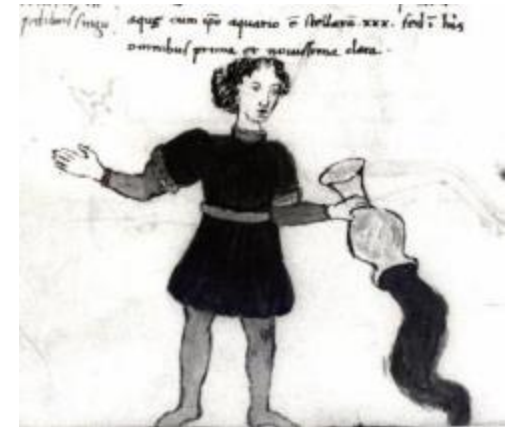 pedibus singu. aquę cum ip̄o aquario ē stellarū .xxx. sed ī his
omnibus prima et nouissima clara .